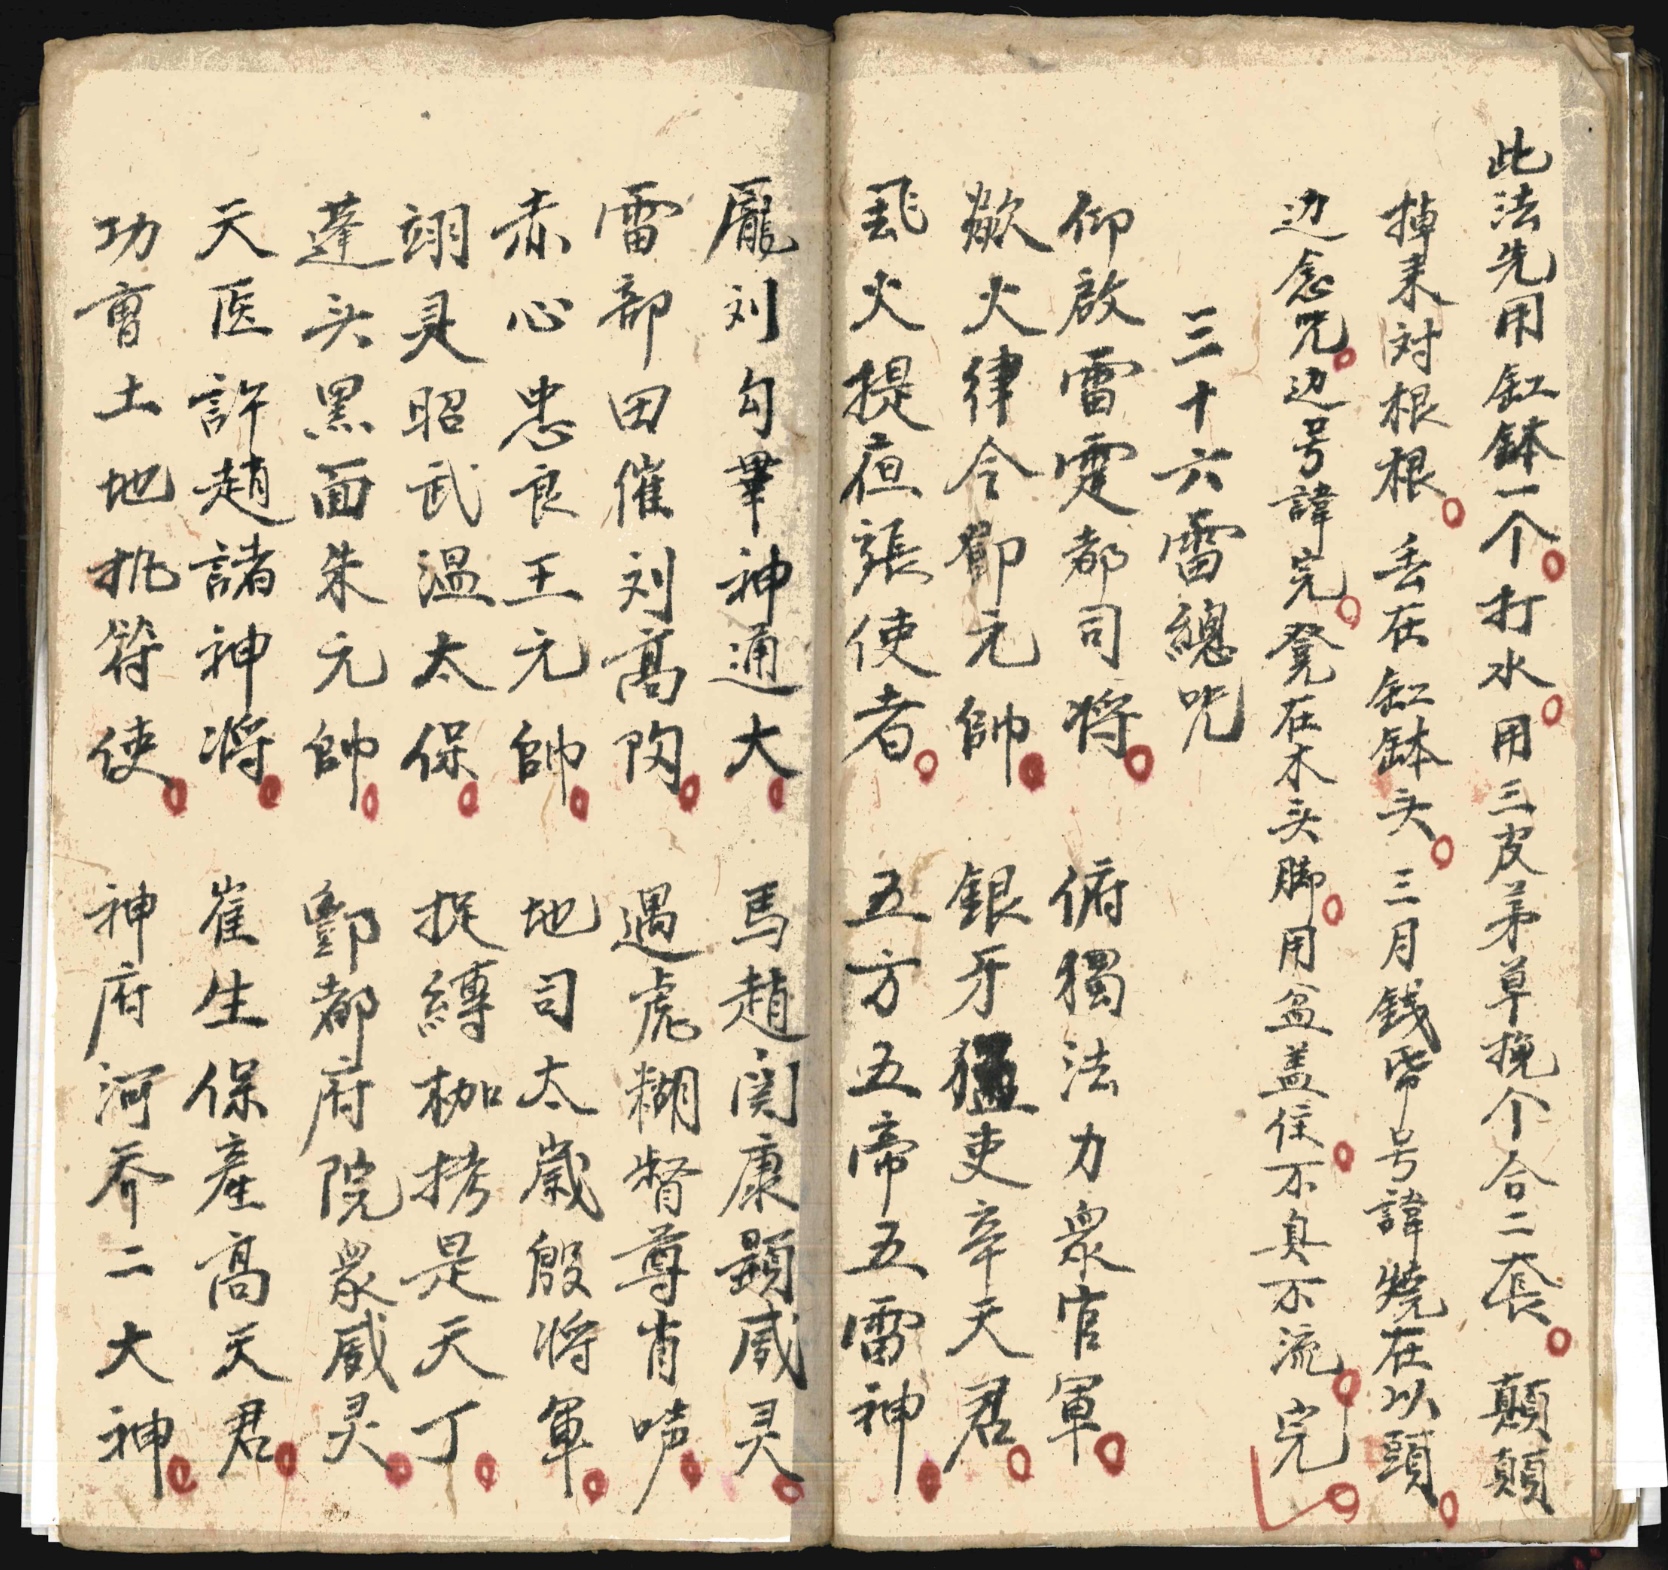 此法先用缸缽一个打水用三皮茅草挽个合二套顛顛
掉来対根根丢在缸缽头三月錢帋号諱燒在以頭
边念咒边号諱完凳在木头脚用盆盖住不臭不流完
三十六雷總咒
仰啟雷霆都司将 俯獨法力眾官軍
歘火律令鄧元帥 銀牙猛吏辛天君
飛火提疽張使者 五方五帝五雷神
龐刘勾畢神通大 馬趙関康顕威灵
雷部田催刘髙 遇虎糊督尊肖吰
赤心忠良王元帥 地司太歲殷将軍
翊灵昭武温太保 捉縳枷拷是天丁
蓬头黑面朱元帥 酆都府院眾威灵
天医許趙諸神将 崔生保產高天君
功曺土地执符使 神府河乔二大神